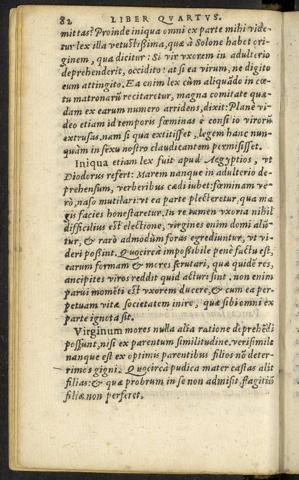 82 LIBER QVARTVS.
mittas? Proinde iniqua omni ex parte mihi vide-
tur lex illa vetustissima, quæ à Solone habet ori-
ginem, qua dicitur: Si vir vxorem in adulterio
deprehenderit, occidito: at si ea virum, ne digito
eum attingito. Ea enim lex cùm aliquãdo in cœ-
tu matronarũ recitaretur, magna comitate quæ-
dam ex earum numero arridens, dixit: Planè vi-
deo etiam id temporis fœminas è consilio virorũ
extrusas. nam si qua extitisset, legem hanc nun-
quàm in sexu nostro claudicantem permisisset.
Iniqua etiam lex fuit apud Aegyptios, vt
Diodorus refert: Marem nanque in adulterio de-
prehensum, verberibus cædi iubet: fœminam ve-
rò, naso mutilari: vt ea parte plecteretur, qua ma
gis facies honestaretur. In re tamen vxoria nihil
difficilius est electione, virgines enim domi alũ-
tur, & rarò admodùm foràs egrediuntur, vt vi-
deri possint. Quocirca impossibile penè factu est,
earum formam & mores scrutari, quæ quidẽ res,
ancipites viros reddit quid acturi sint. non enim
parui momẽti est vxorem ducere, & cum ea per-
petuam vitæ societatem inire, quæ sibi omni ex
parte ignota sit.
Virginum mores nulla alia ratione deprehẽdi
possunt, nisi ex parentum similitudine. verisimile
nanque est ex optimis parentibus filios nõ deter-
rimos gigni. Quocirca pudica mater castas alit
filias: & quæ probrum in se non admisit, flagitiũ
filiæ non perferet.